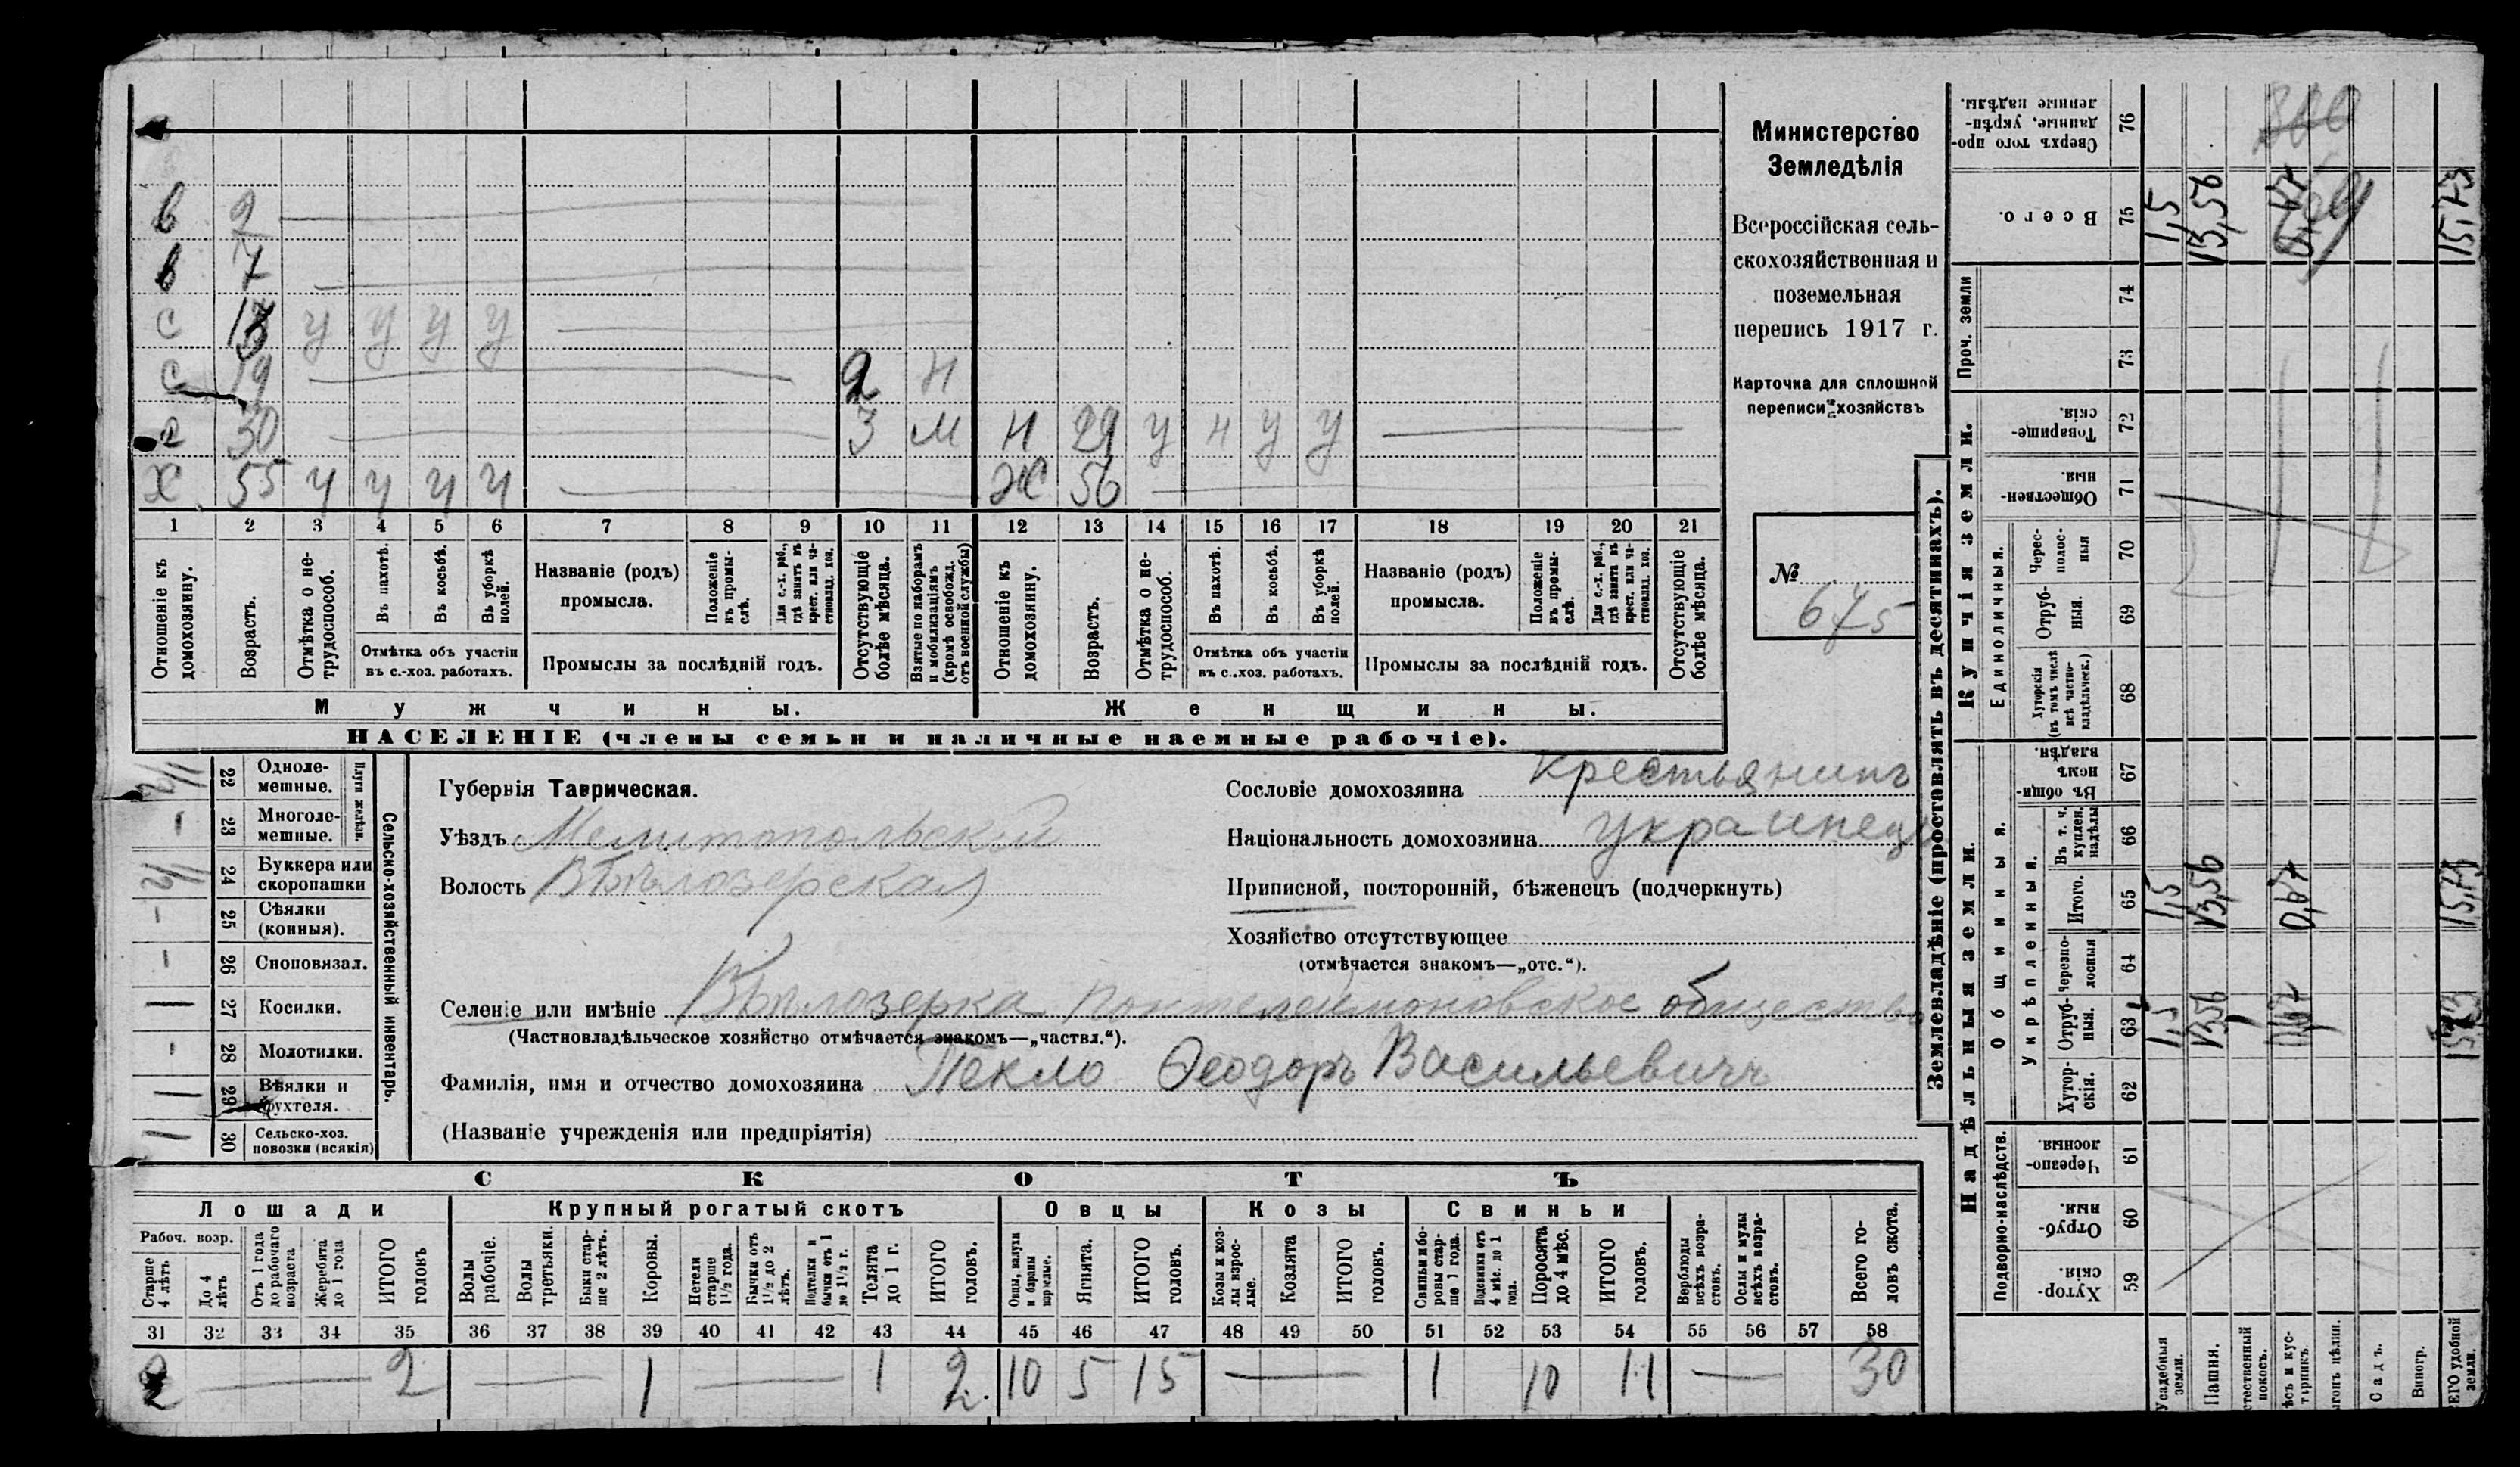 в 2
в 7
с
у у у у
с 19 2 Н
30 3 М Н 29 У Н У У
Х 55 У У У У Ж 56
1 2 3 4 5 6 7 8 9 10 11 12 13 14 15 16 17 18 19 20 21
Отношеніе къ домохозяину.
Возрастъ.
Отмѣтка о нетрудоспособ.
Въ пахотѣ.
Въ косьбѣ.
Въ уборкѣ полей.
Отмѣтка объ участіи въ с.-хоз. работахъ.
Названіе (родъ) промысла.
Положеніе въ промыслѣ.
Для с.-х. раб., гдѣ занятъ въ крест. или частновлад. хоз.
Промыслы за послѣдній годъ.
Отсутствующіе болѣе мѣсяца.
Взятые по наборамъ и мобилизаціямъ (кромѣ освобожд. отъ военной службы)
Отношеніе къ домохозяину.
Возрастъ.
Отмѣтка о нетрудоспособ.
Въ пахотѣ.
Въ косьбѣ.
Въ уборкѣ полей.
Отмѣтка объ участіи въ с.-хоз. работахъ.
Названіе (родъ) промысла.
Положеніе въ промыслѣ.
Для с.-х. раб., гдѣ занята въ крест. или частновлад. хоз.
Промыслы за послѣдній годъ.
Отсутствующіе болѣе мѣсяца.
Мужчины.
Женщины.
НАСЕЛЕНІЕ (члены семьи и наличные наемные рабочіе).
Министерство
Земледѣлія
Всероссійская сель-
скохозяйственная и
поземельная
перепись 1917 г.
Карточка для сплошной
переписи хозяйствъ
№
675
Сельско-хозяйственный инвентарь.
Плуги желѣзн.
1/2 22 Одноле-
мешные.
- 23 Многоле-
мешные.
1/2 24 Буккера или
скоропашки
- 25 Сѣялки
(конныя).
- 26 Сноповязал.
1 27 Косилки.
- 28 Молотилки.
1 29 Вѣялки и
фухтеля.
1 30 Сельско-хоз.
повозки (всякія)
Губернія Таврическая.
Уѣздъ Мелитопольскій
Волость Бѣлозерская
Сословіе домохозяина крестьянинъ
Національность домохозяина украинецъ
Приписной, посторонній, бѣженецъ (подчеркнуть)
Хозяйство отсутствующее
(отмѣчается знакомъ—„отс.“).
Селеніе или имѣніе Бѣлозерка Понтелеймоновское общество
(Частновладѣльческое хозяйство отмѣчается знакомъ—„частвл.“).
Фамилія, имя и отчество домохозяина Пекло Ѳеодоръ Васильевичъ
(Названіе учрежденія или предпріятія)
СКОТЪ
Лошади
Рабоч. возр.
Старше 4 лѣтъ
До 4 лѣтъ
Отъ 1 года до рабочаго возраста
Жеребята до 1 года
ИТОГО головъ
Крупный рогатый скотъ
Волы рабочіе.
Волы третьяки.
Быки старше 2 лѣтъ.
Коровы.
Нетели старше 1½ года.
Бычки отъ 1½ до 2 лѣтъ.
Подтелки и бычки отъ 1 до 1½ г.
Телята до 1 г.
ИТОГО головъ.
Овцы
Овцы, валухи и бараны взрослые.
Ягнята.
ИТОГО головъ.
Козы
Козы и козлы взрослые.
Козлята
ИТОГО головъ.
Свиньи
Свиньи и боровы старше 1 года.
Подсвинки отъ 4 мѣс. до 1 года.
Поросята до 4 мѣс.
ИТОГО головъ.
Верблюды всѣхъ возрастовъ.
Ослы и мулы всѣхъ возрастовъ.
Всего головъ скота.
31 32 33 34 35 36 37 38 39 40 41 42 43 44 45 46 47 48 49 50 51 52 53 54 55 56 57 58
2 — 2 — 1 — 1 2 10 5 15 — 1 10 11 — 30
Землевладѣніе (проставлять въ десятинахъ).
Купчія земли.
Надѣльныя земли.
Сверхъ того проданные, укрѣпленные надѣлы. 76
Всего. 75 1,5 13,56 15,73
Проч. земли 74 73
Товарищескія. 72
Общественныя. 71
Единоличныя.
Чересполосныя 70
Отрубныя. 69
Хуторскія (въ томъ числѣ всѣ частновладѣльческ.) 68
Общинныя.
Въ общемъ владѣн. 67
Укрѣпленныя.
Въ т. ч. куплен. надѣлы 66
Итого. 65 1,5 13,56 0,67 15,73
Черезполосныя 64
Отрубныя. 63 1,5 13,56 0,67 15,73
Хуторскія. 62
Подворно-наслѣдств.
Черезполосныя. 61
Отрубныя. 60
Хуторскія. 59
Усадебныя земли.
Пашня.
стественный покосъ.
ѣсъ и кустарникъ.
ыгонъ цѣлин.
Садъ.
Виногр.
ЕГО удобной земли.